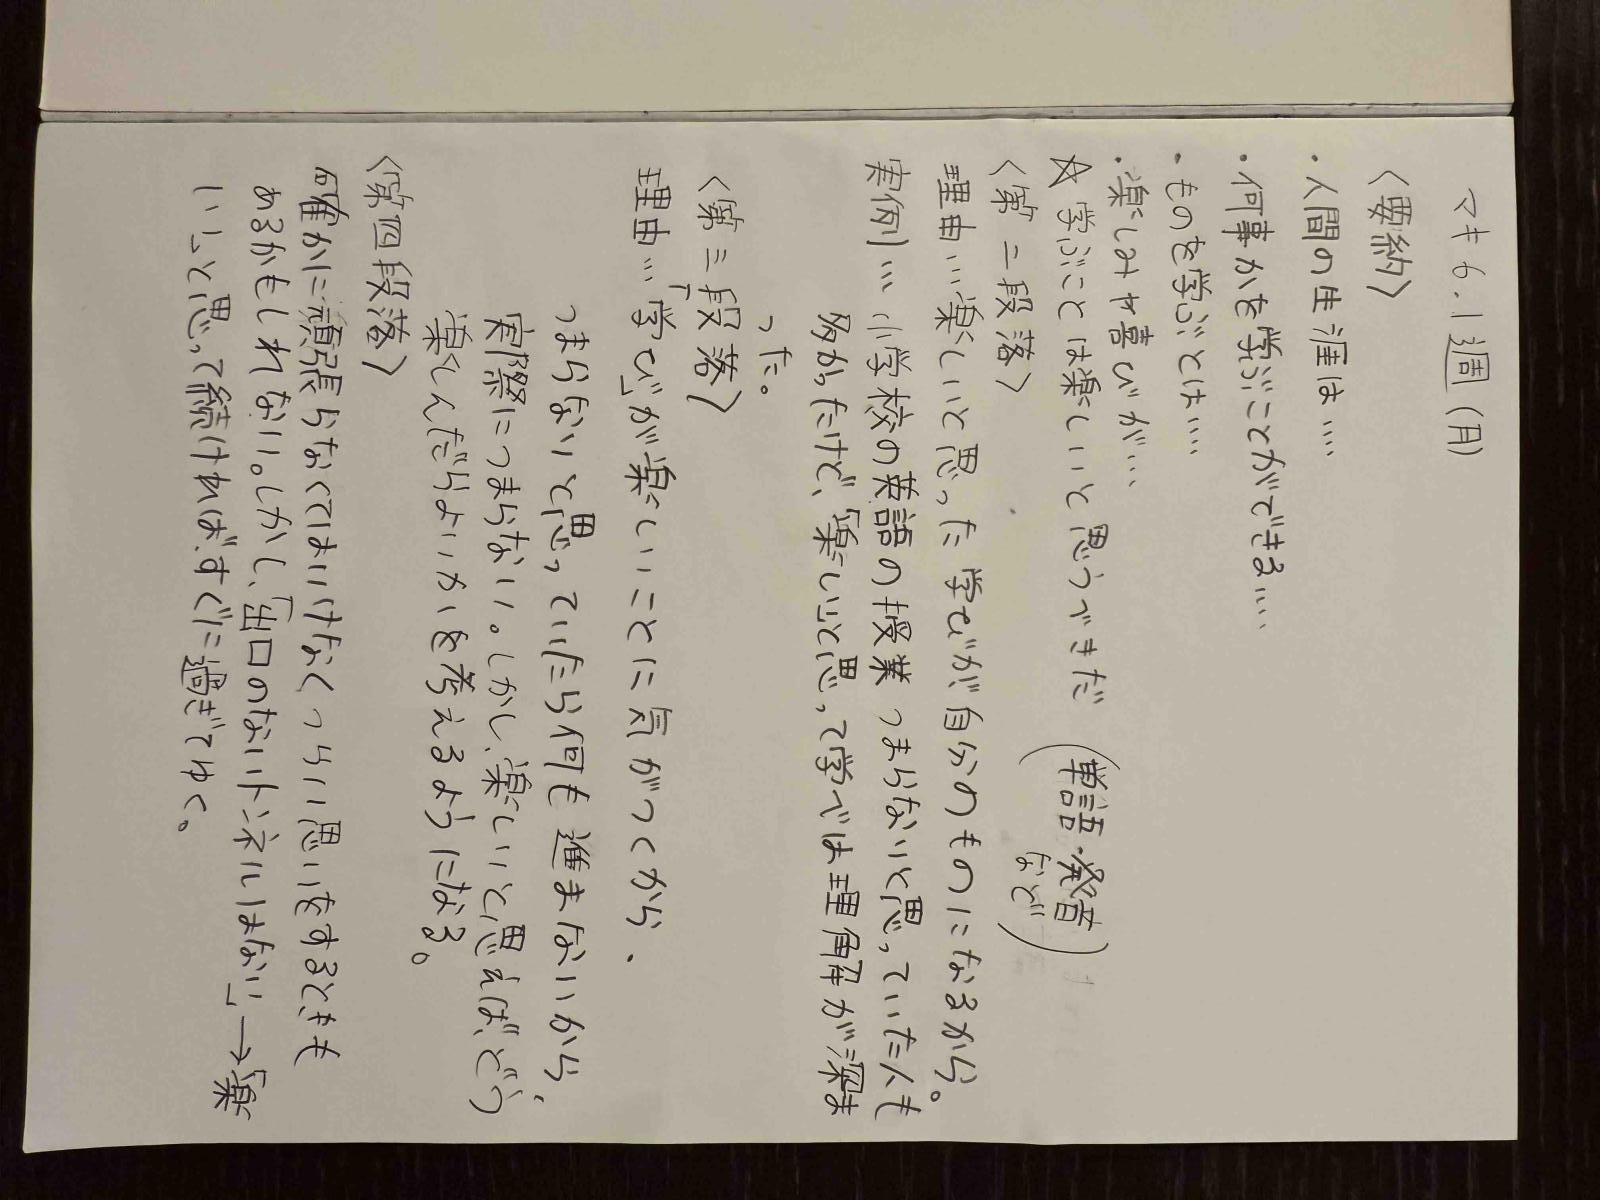 マキ6.1週(月)
〈要約〉
・人間の生涯は‥‥
・何事かを学ぶことができる‥‥
・ものを学ぶとは‥‥
・楽しみや喜びが‥‥
☆ 学ぶことは楽しいと思うべきだ (単語・発音など)
〈第二段落〉
理由…楽しいと思った学びが自分のものになるから。
実例…小学校の英語の授業 つまらないと思っていた人も
多かったけど、「楽しい」と思って学べば理解が深ま
った。
〈第三段落〉
理由…「学び」が楽しいことに気がつくから.
つまらないと思っていたら何も進まないから、
実際につまらない。しかし、楽しいと思えば、どう
楽しんだらよいかを考えるようになる。
〈第四段落〉
確かに頑張らなくてはいけなくつらい思いをするときも
あるかもしれない。しかし、「出口のないトンネルはない」→「楽
しい」と思って続ければ、すぐに過ぎてゆく。